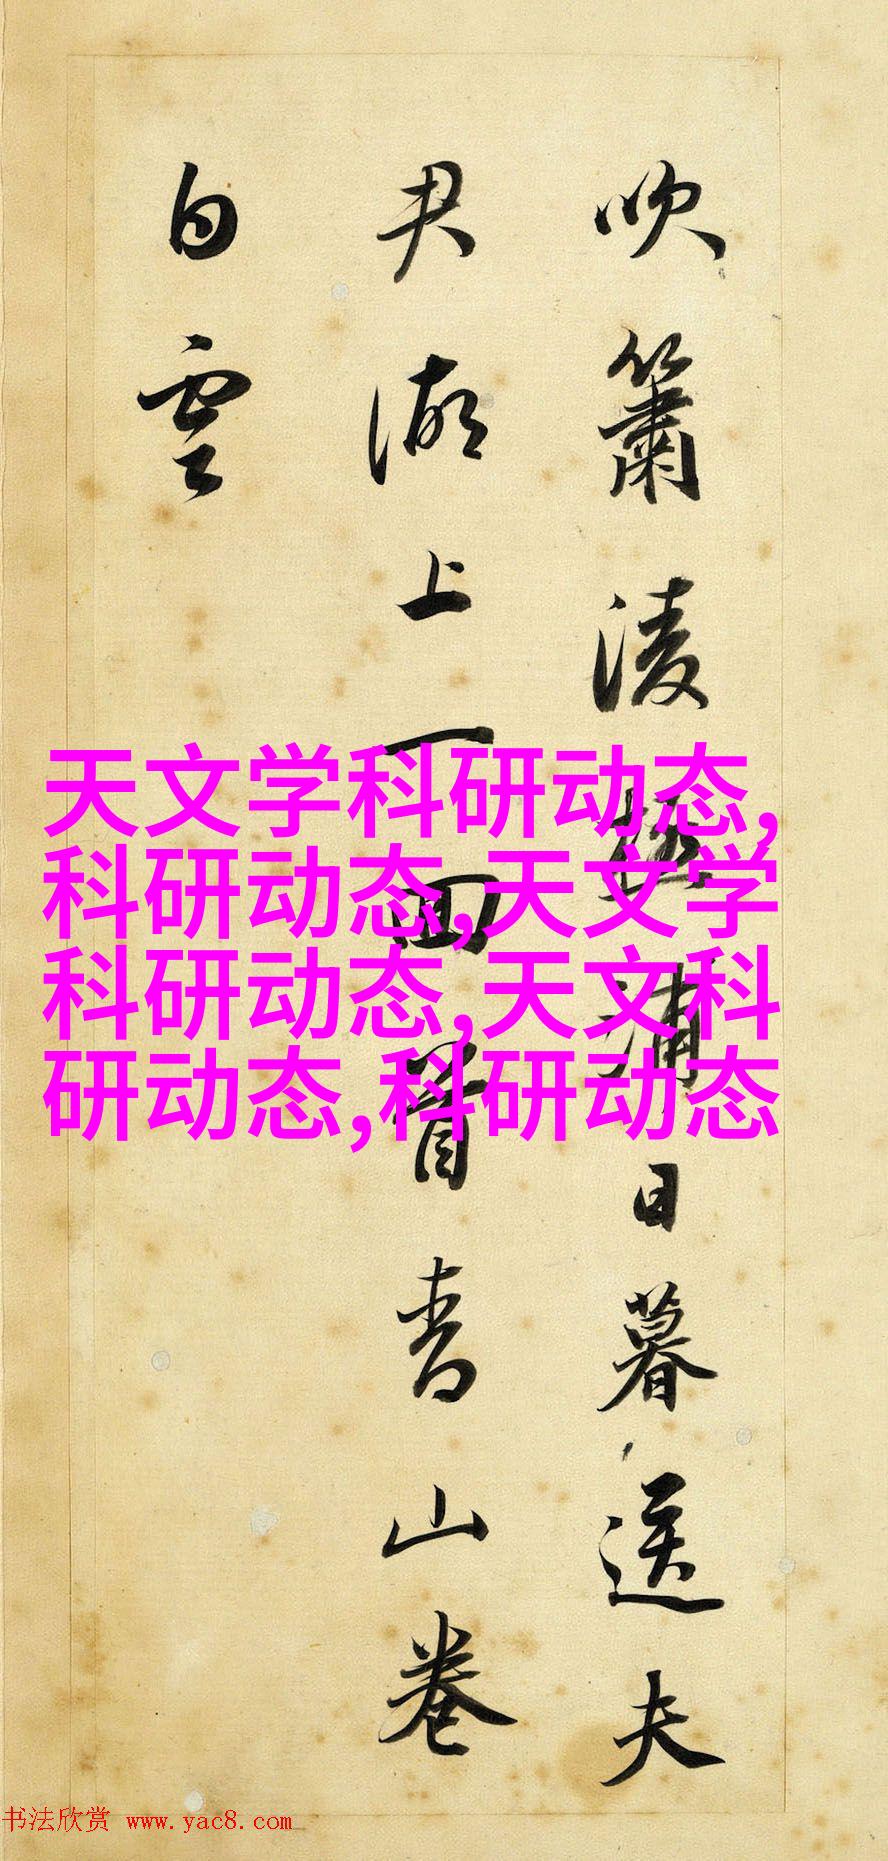 吹簫淩極浦日暮送夫
君湖上一回首青山卷
白雲
天文学科研动态,
科研动态,天文学
科研动态,天文科
研动态,科研动态
书法欣赏 www.yac8.com